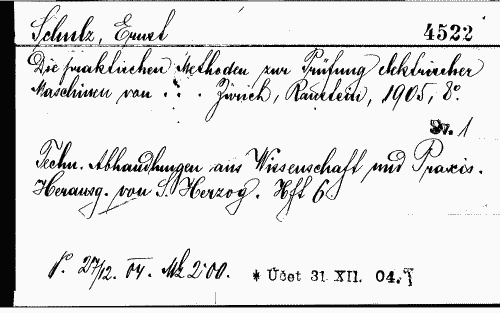 Schulz, Ernst
4522
Die praktischen Methoden zur Prüfung elektrischer
Maschinen von . . . Zürich, Raustein, 1905, 8°.
Sv. 1
Techn. Abhandlungen aus Wissenschaft und Praxis.
Herausg. von S. Herzog. Hft 6.
27/12. 04. Mk 2·00. * Účet 31. XII. 04.